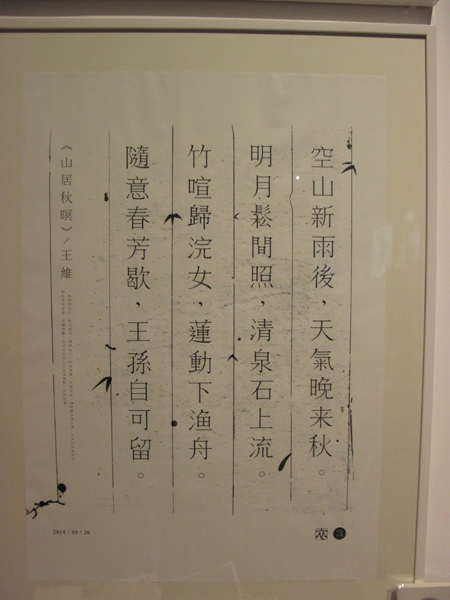 空山新雨後，天氣晚来秋。
明月鬆間照，清泉石上流。
竹喧歸浣女，蓮動下渔舟。
隨意春芳歇，王孫自可留。
《山居秋暝》/王維